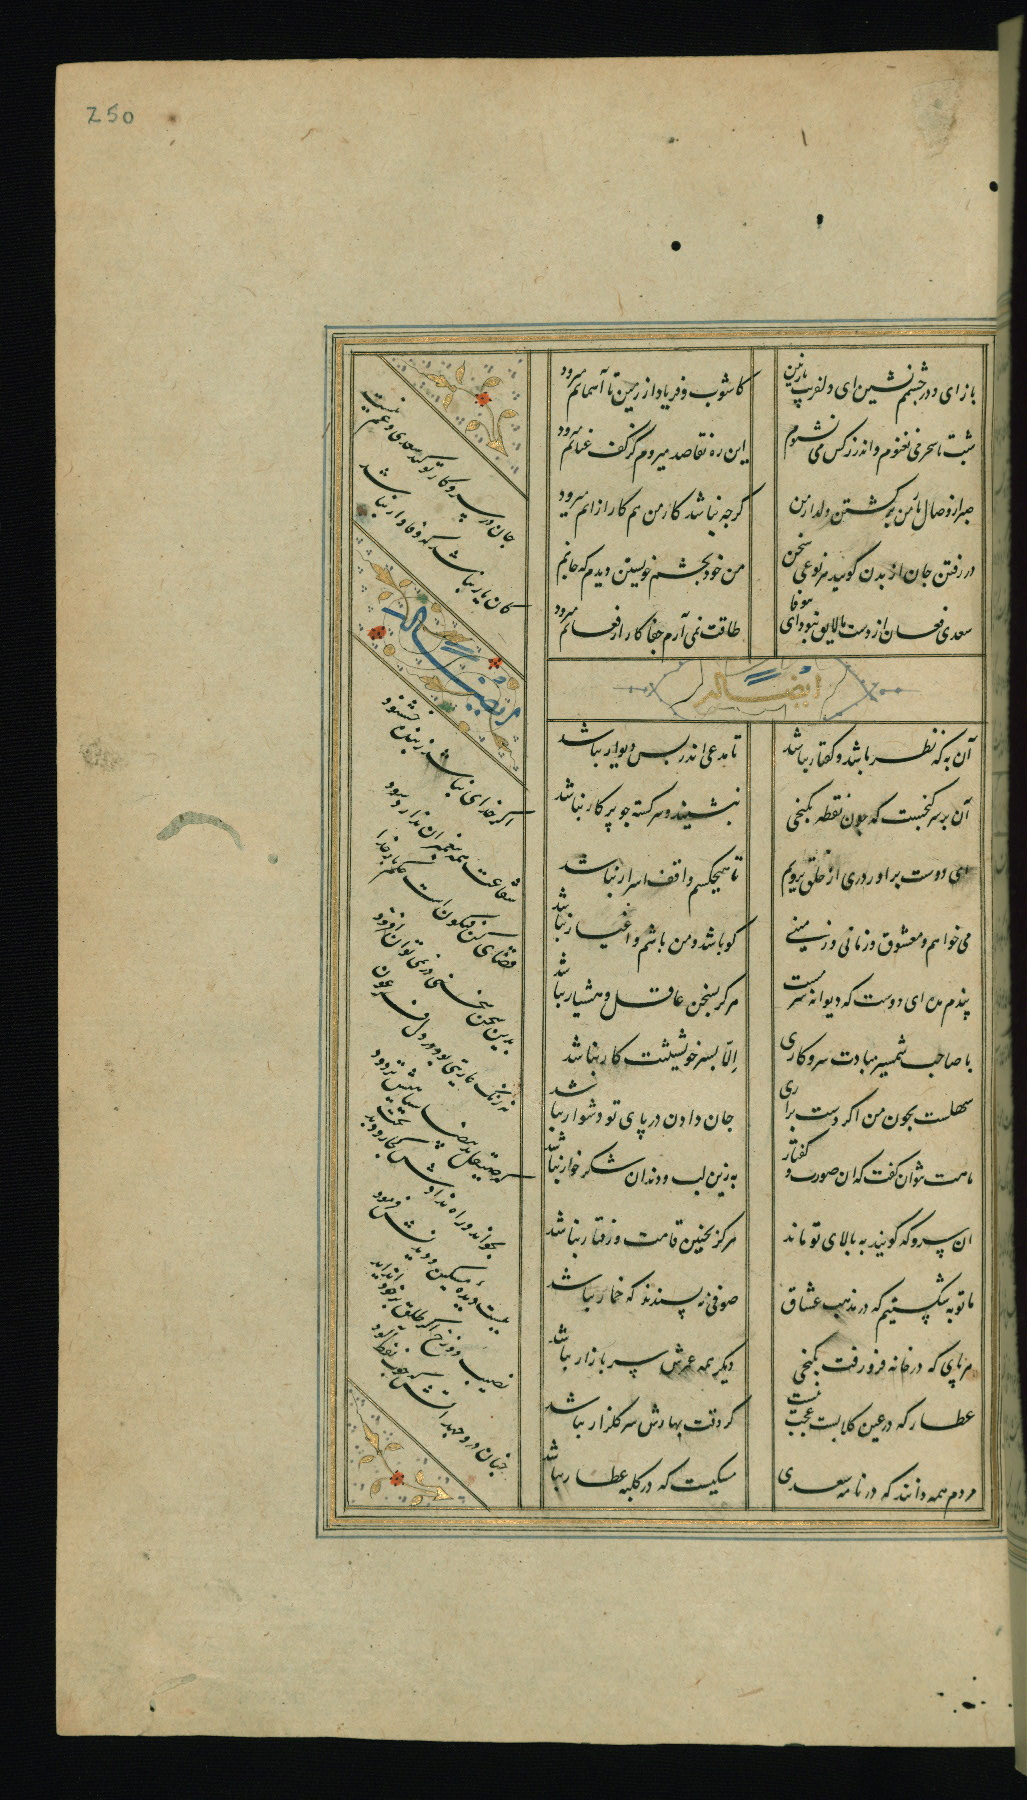 250
باز ای و در چشمم نشین ای دلفریب نازنین
کاشوب و فریاد از زمین تا آسمانم میرود
شب تا سحر می نغنوم و اندرز کس می نشنوم
این ره نه قاصد میروم کز کف عنانم میرود
صبر از وصال یار من برگشتن از دلدار من
گرچه نباشد کار من هم کار ازانم میرود
در رفتن جان از بدن گویند هر نوعی سخن
من خود بچشم خویشتن دیدم که جانم
سعدی فغان از دست ما لایق نبود ای بیوفا
طاقت نمی آرم جفا کار از فغانم میرود
ایضا له
آن به که نظر باشد و گفتار نباشد
تا مدعی اندر پس دیوار نباشد
آن بر سر گنجست که چون نقطه بکنجی
بنشیند و سرگشته چو پرکار نباشد
ای دوست بر آور دری از خلق برویم
تا هیچکسم واقف اسرار نباشد
می خواهم و معشوق و زمانی و زمینی
کو باشد و من باشم و اغیار نباشد
پندم مده ای دوست که دیوانه سرمست
هرگز بسخن عاقل و هشیار نباشد
با صاحب شمشیر مبادت سر و کاری
الا بسر خویشتنت کار نباشد
سهلست بخون من اگر دست براری
جان دادن در پای تو دشوار نباشد
ماهت نتوان گفت که ان صورت و گفتار
به زین لب و دندان شکر خوار نباشد
ان سرو که گویند به بالای تو ماند
هرگز بچنین قامت و رفتار نباشد
ما توبه شکستیم که در مذهب عشاق
صوفی نه پسندند که خمار نباشد
هر پای که در خانه فرو رفت بکنجی
دیگر همه عمرش سر بازار نباشد
عطار که در عین گلابست عجب نیست
گر وقت بهارش سر گلزار نباشد
مردم همه دانند که در نامه سعدی
مشکیست که در کلبه عطار نباشد
جان در سر و کار تو کند سعدی و غم نیست
کان یار نباشد که وفادار نباشد
مرثیت له
اگر خدای نباشد ز بنده خشنود
شفاعت همه پیغمبران ندارد سود
قضای کن فیکون است حکم بار خدا
بدین سخن سخنی در نمی توان افزود
نه زنگ عاریتی بود بر دل فرعون
که صیقل ید بیضا سیاهیش نزدود
بخواند و راه ندادش کجا رود بدبخت
ببست دیده مسکین و دیدنش فرمود
نصیب دوزخ اگر طلق بر خود انداید
چنان درو جهد اتش که چوب نفط آلود